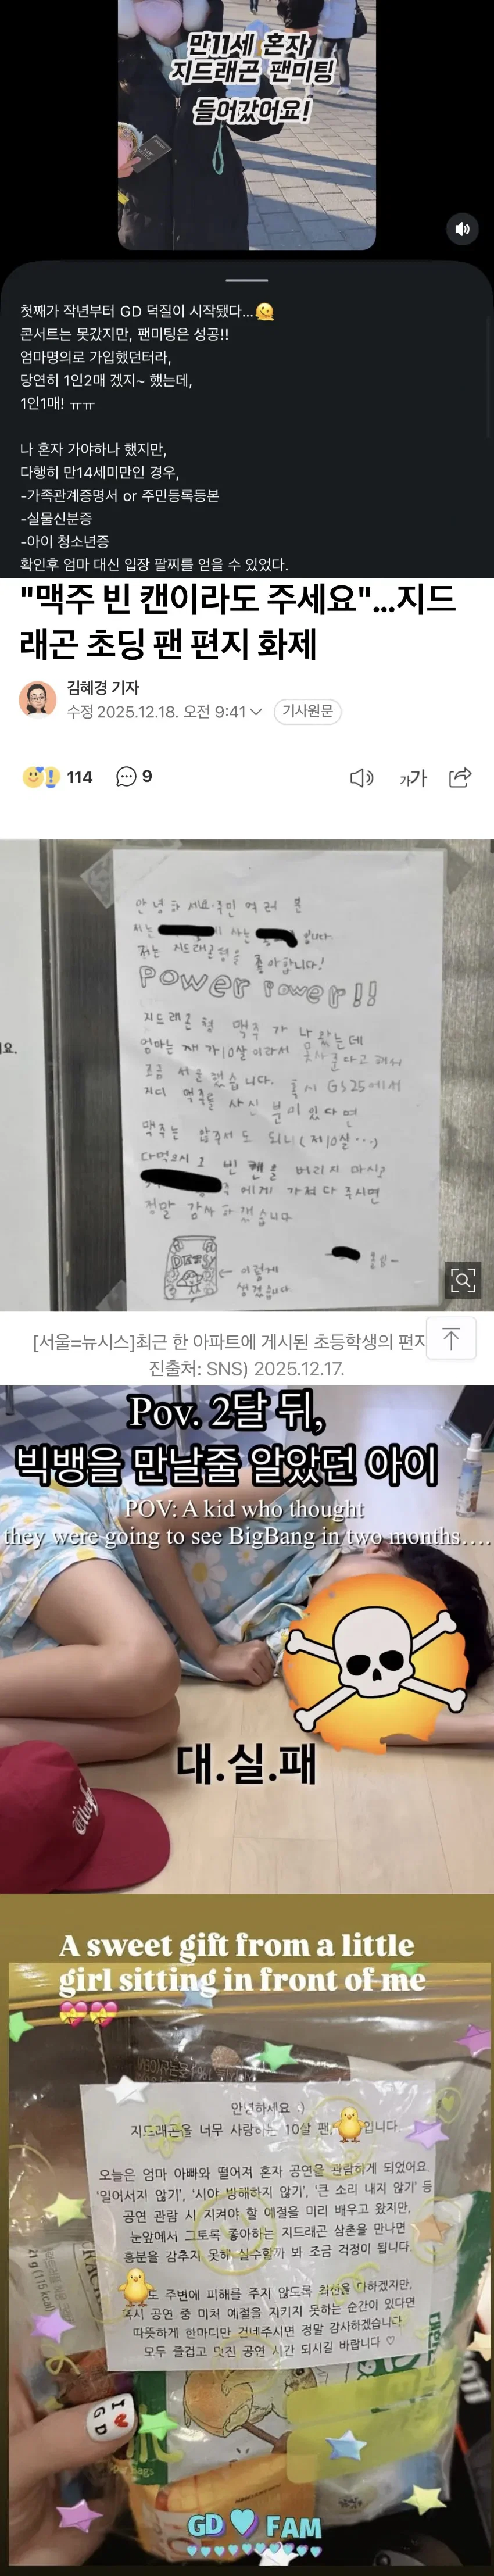 만11세 혼자
지드래곤 팬미팅
들어갔어요!
첫째가 작년부터 GD 덕질이 시작됐다...🫠
콘서트는 못갔지만, 팬미팅은 성공!!
엄마명의로 가입했던터라,
당연히 1인2매 겠지~ 했는데,
1인1매! ㅠㅠ
나 혼자 가야하나 했지만,
다행히 만14세미만인 경우,
-가족관계증명서 or 주민등록등본
-실물신분증
-아이 청소년증
확인후 엄마 대신 입장 팔찌를 얻을 수 있었다.
"맥주 빈 캔이라도 주세요"...지드
래곤 초딩 팬 편지 화제
김혜경 기자
수정 2025.12.18. 오전 9:41
기사원문
114
9
가가
안녕하세요 주민 여러분
저는 사는 입니다.
저는 지드래곤형을 좋아합니다!
Power Power!!
지드래곤 형 맥주가 나왔는데
엄마는 제가 10살이라서 못사준다고 해서
조금 서운했습니다. 혹시 GS25에서
지디 맥주를 사신 분이 있다면
맥주는 않주셔도 되니 (제 10살...)
다먹으시고 빈 캔을 버리지 마시고
에게 가져다 주시면
정말 감사하겠습니다
요.
DAISY
← 이렇게
생겼습니다
올림-
[서울=뉴시스]최근 한 아파트에 게시된 초등학생의 편지
진출처: SNS) 2025.12.17.
Pov. 2달 뒤,
빅뱅을 만날줄 알았던 아이
POV: A kid who thought
they were going to see BigBang in two months....
대.실.패
A sweet gift from a little
girl sitting in front of me
💝💝
안녕하세요 :)
지드래곤을 너무 사랑하는 10살 팬, 🐥입니다.
오늘은 엄마 아빠와 떨어져 혼자 공연을 관람하게 되었어요.
'일어서지 않기', '시야 방해하지 않기', '큰 소리 내지 않기' 등
공연 관람 시 지켜야 할 예절을 미리 배우고 왔지만,
눈앞에서 그토록 좋아하는 지드래곤 삼촌을 만나면
흥분을 감추지 못해 실수할까 봐 조금 걱정이 됩니다.
🐥도 주변에 피해를 주지 않도록 최선을 다하겠지만,
혹시 공연 중 미처 예절을 지키지 못하는 순간이 있다면
따뜻하게 한마디만 건네주시면 정말 감사하겠습니다
모두 즐겁고 멋진 공연 시간 되시길 바랍니다 ♡
21 g (115 kcal)
I ♥
G D
GD 🩵 FAM